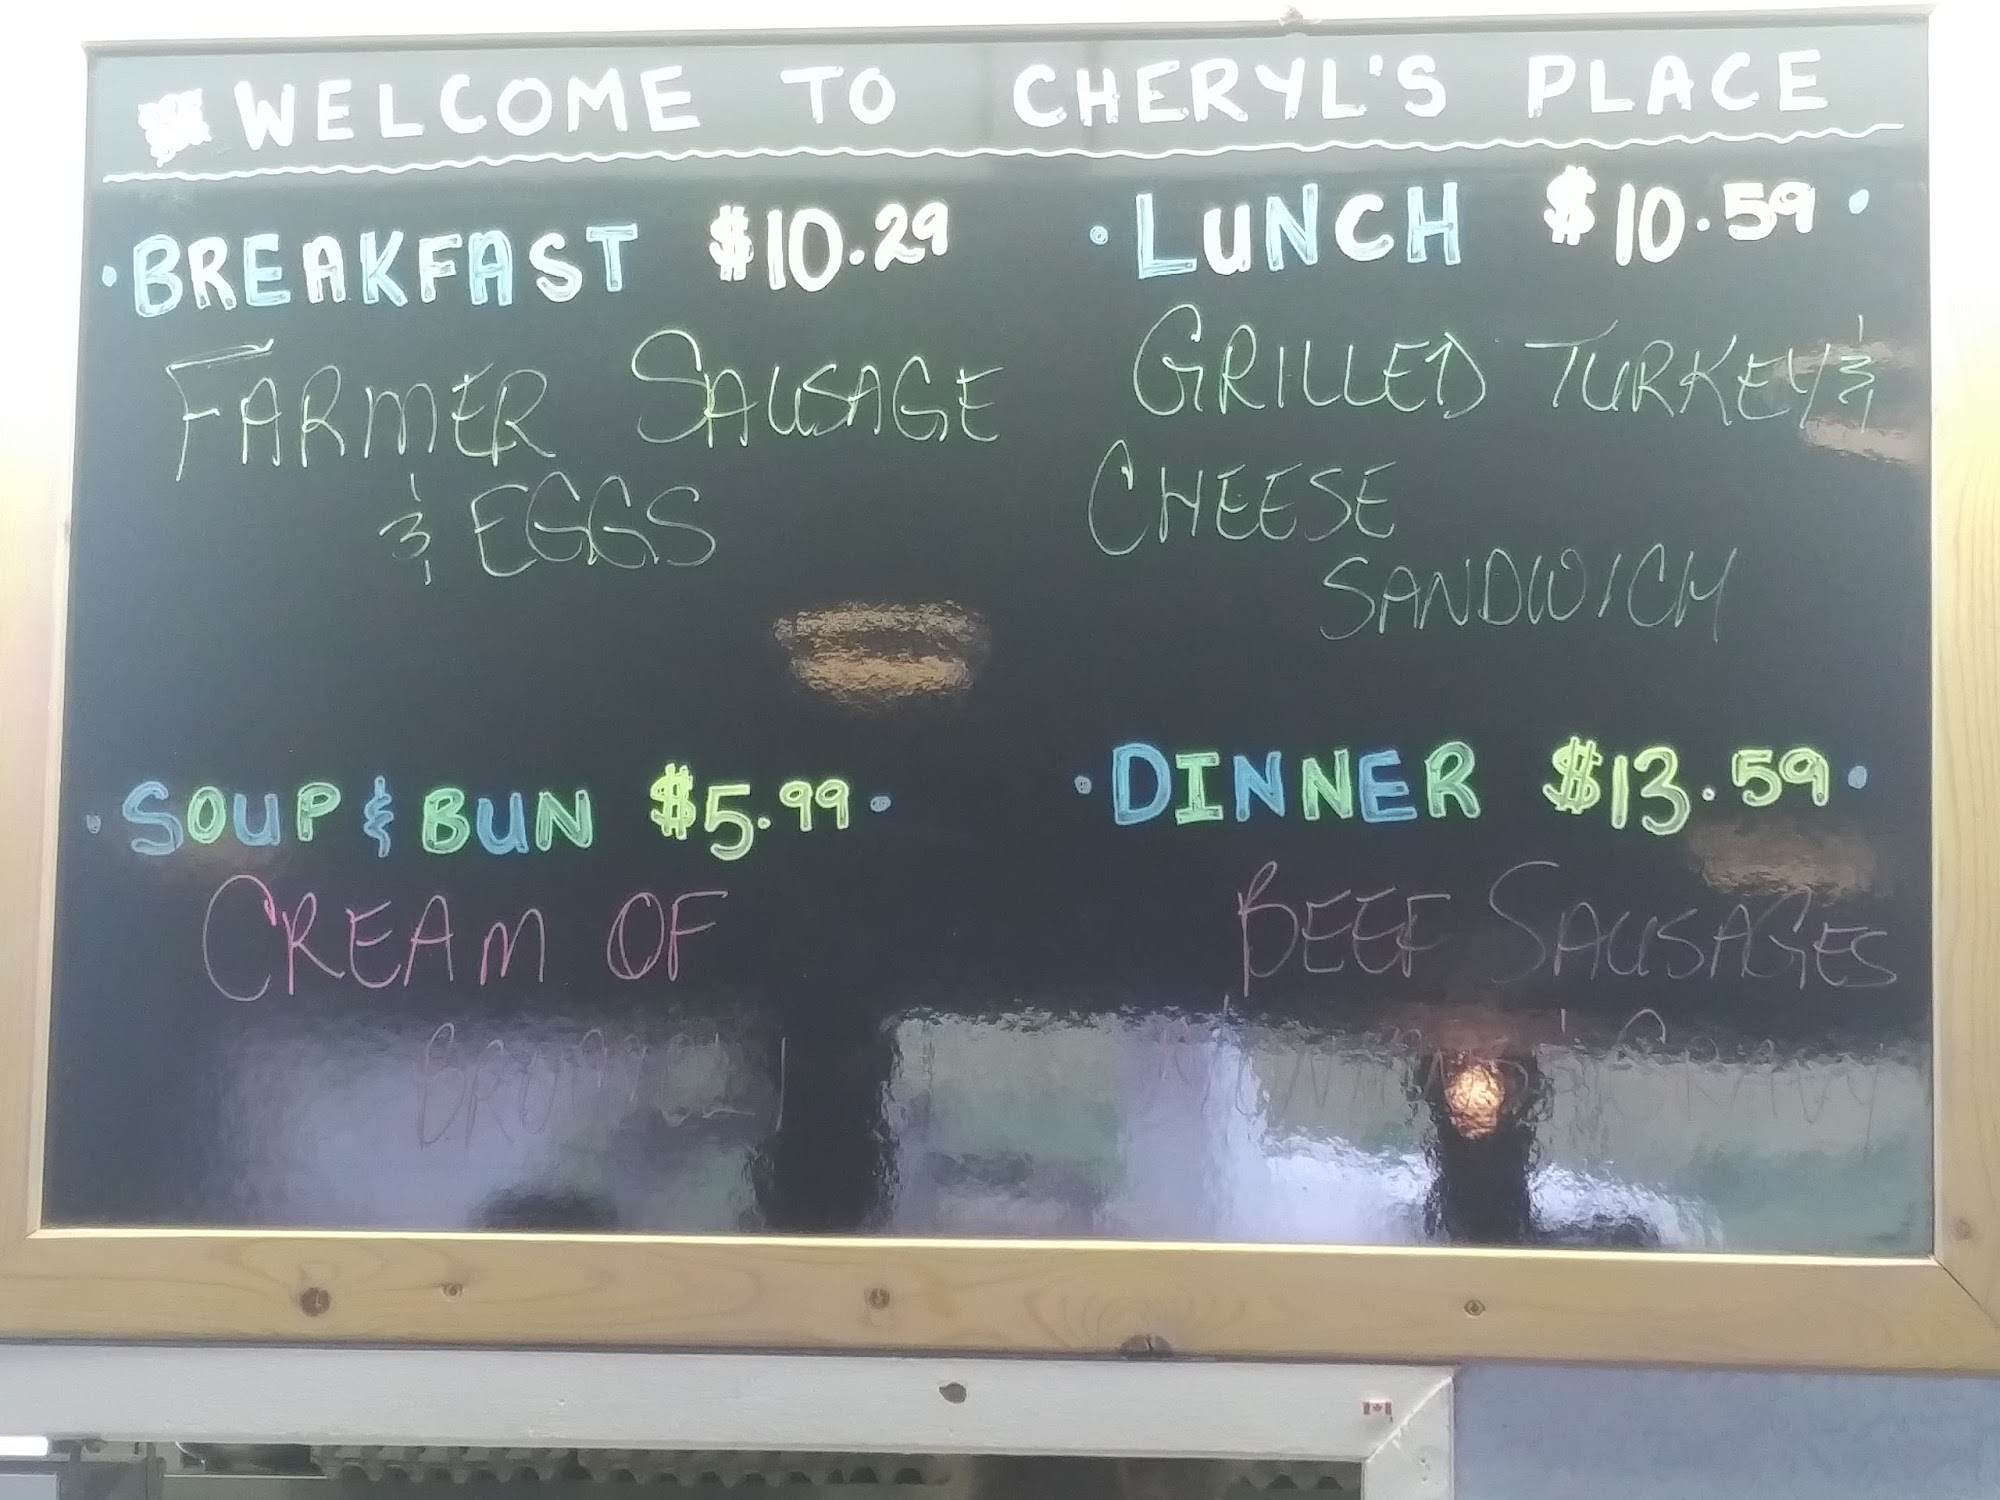 WELCOME TO CHERYL'S PLACE
·BREAKFAST $10.29
FARMER SAUSAGE
& EGGS
·LUNCH $10.59·
GRILLED TURKEY &
CHEESE
SANDWICH
·SOUP & BUN $5.99·
CREAM OF
·DINNER $13.59·
BEEF SAUSAGES